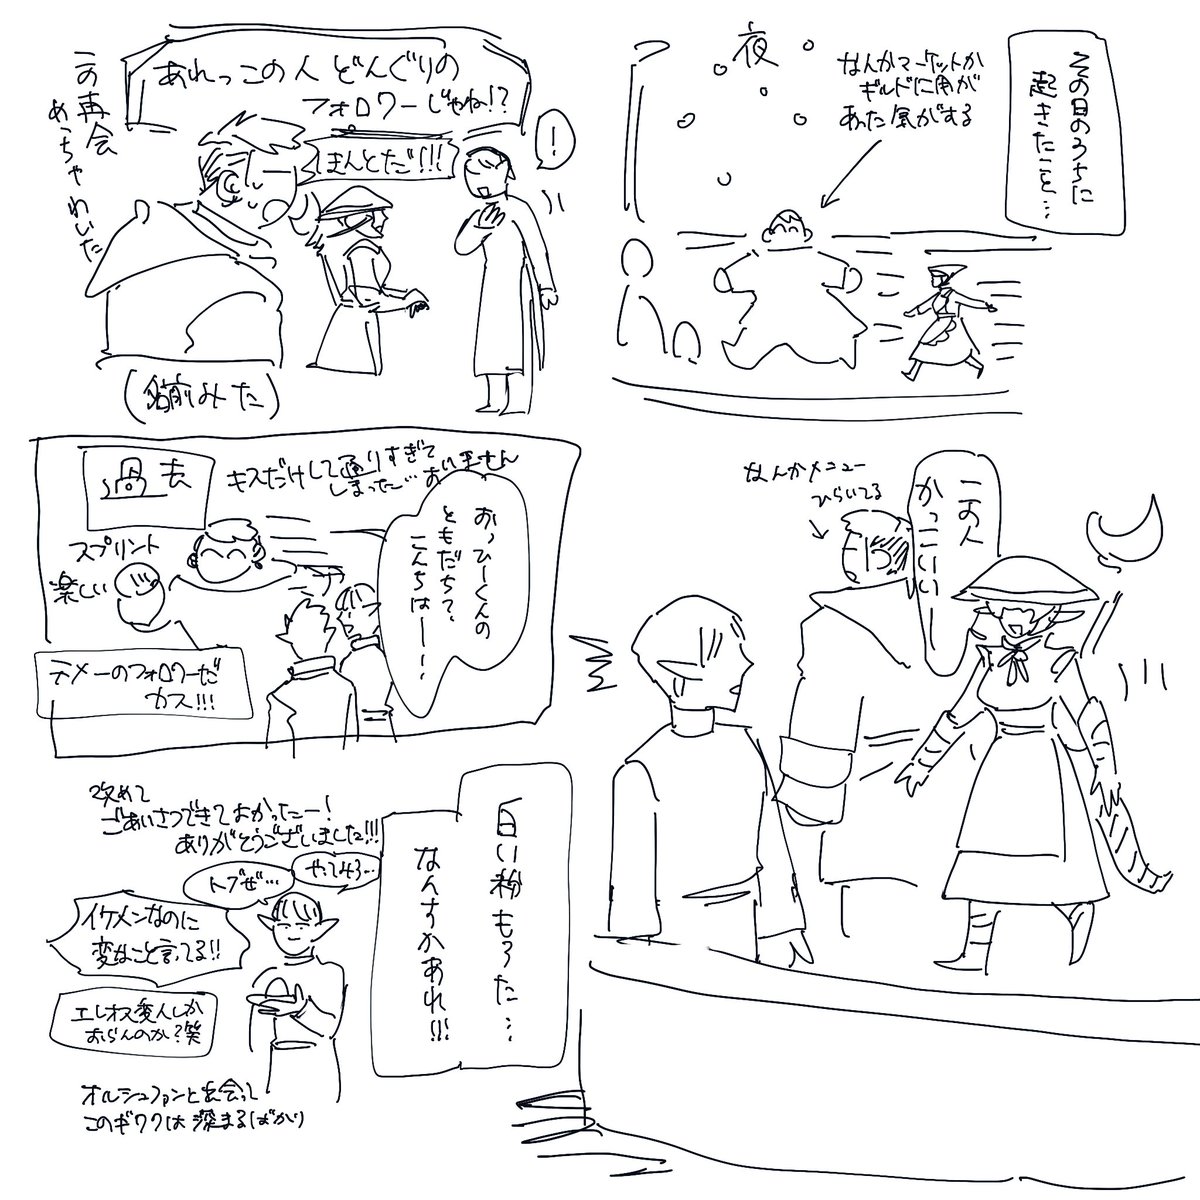 その日のうちに
起きたこと…
夜
なんかマーケットか
ギルドに用が
あった気がする
あれっこの人 どんぐりの
フォロワーじゃね!?
ほんとだ!!!
!
この再会
めっちゃわいた
(名前みた)
なんかメニュー
ひらいてる
この人
かっこいいー
過去
キスだけして通りすぎて
しまった… おりません
スプリント
楽しい
おっひーくんの
ともだちて、
こんちはーー
テメーのフォロワーだ
カス!!!
白い粉もろた…
なんすかあれ!!!
改めて
ごあいさつできてよかったー!
ありがとうございました!!!
トブぜ…
やってみろ…
イケメンなのに
変なこと言ってる!!
エレオス変人しか
おらんのか?笑
オルシュファンと出会って
このギワクは深まるばかり